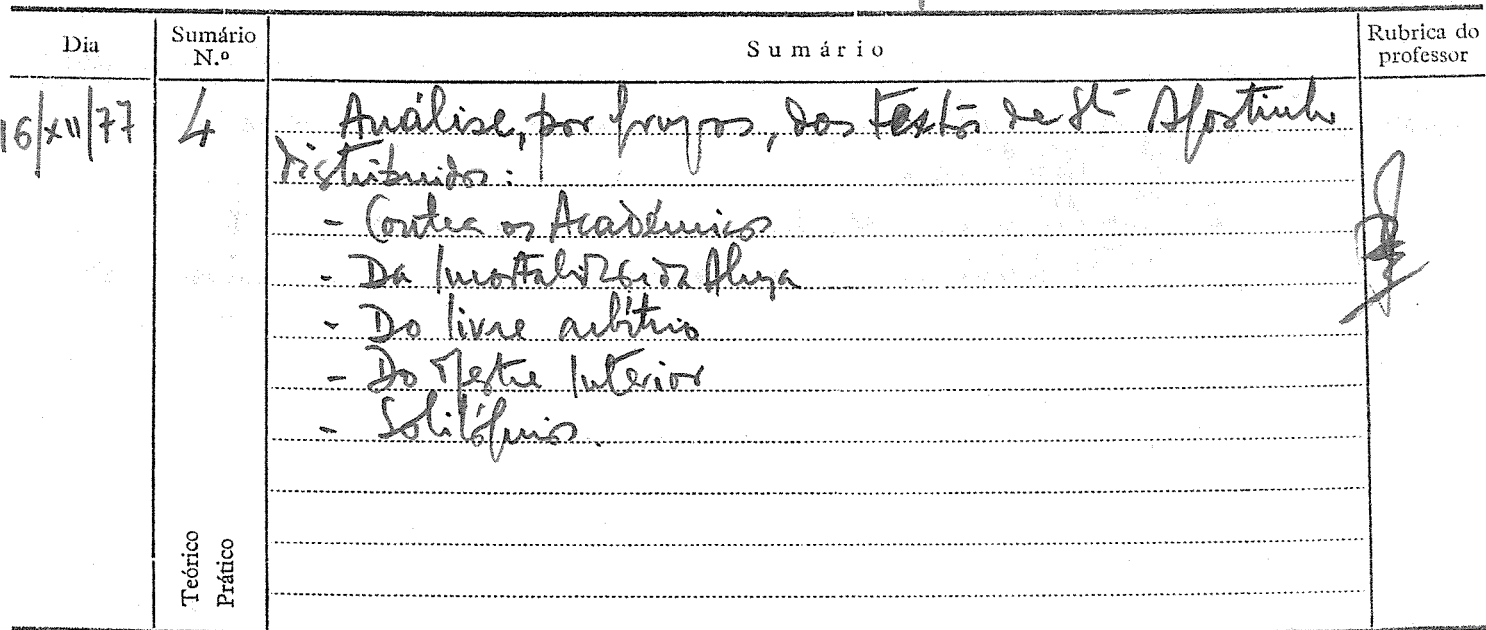 Dia
Sumário
N.º
Sumário
Rubrica do
professor
16/XII/77
4
Análise, por grupos, dos textos de Stº Agostinho
distribuídos:
- Contra os Académicos
- Da Imortalidade da Alma
- Do livre arbítrio
- Do Mestre Interior
- Solilóquios.
Teórico
Prático